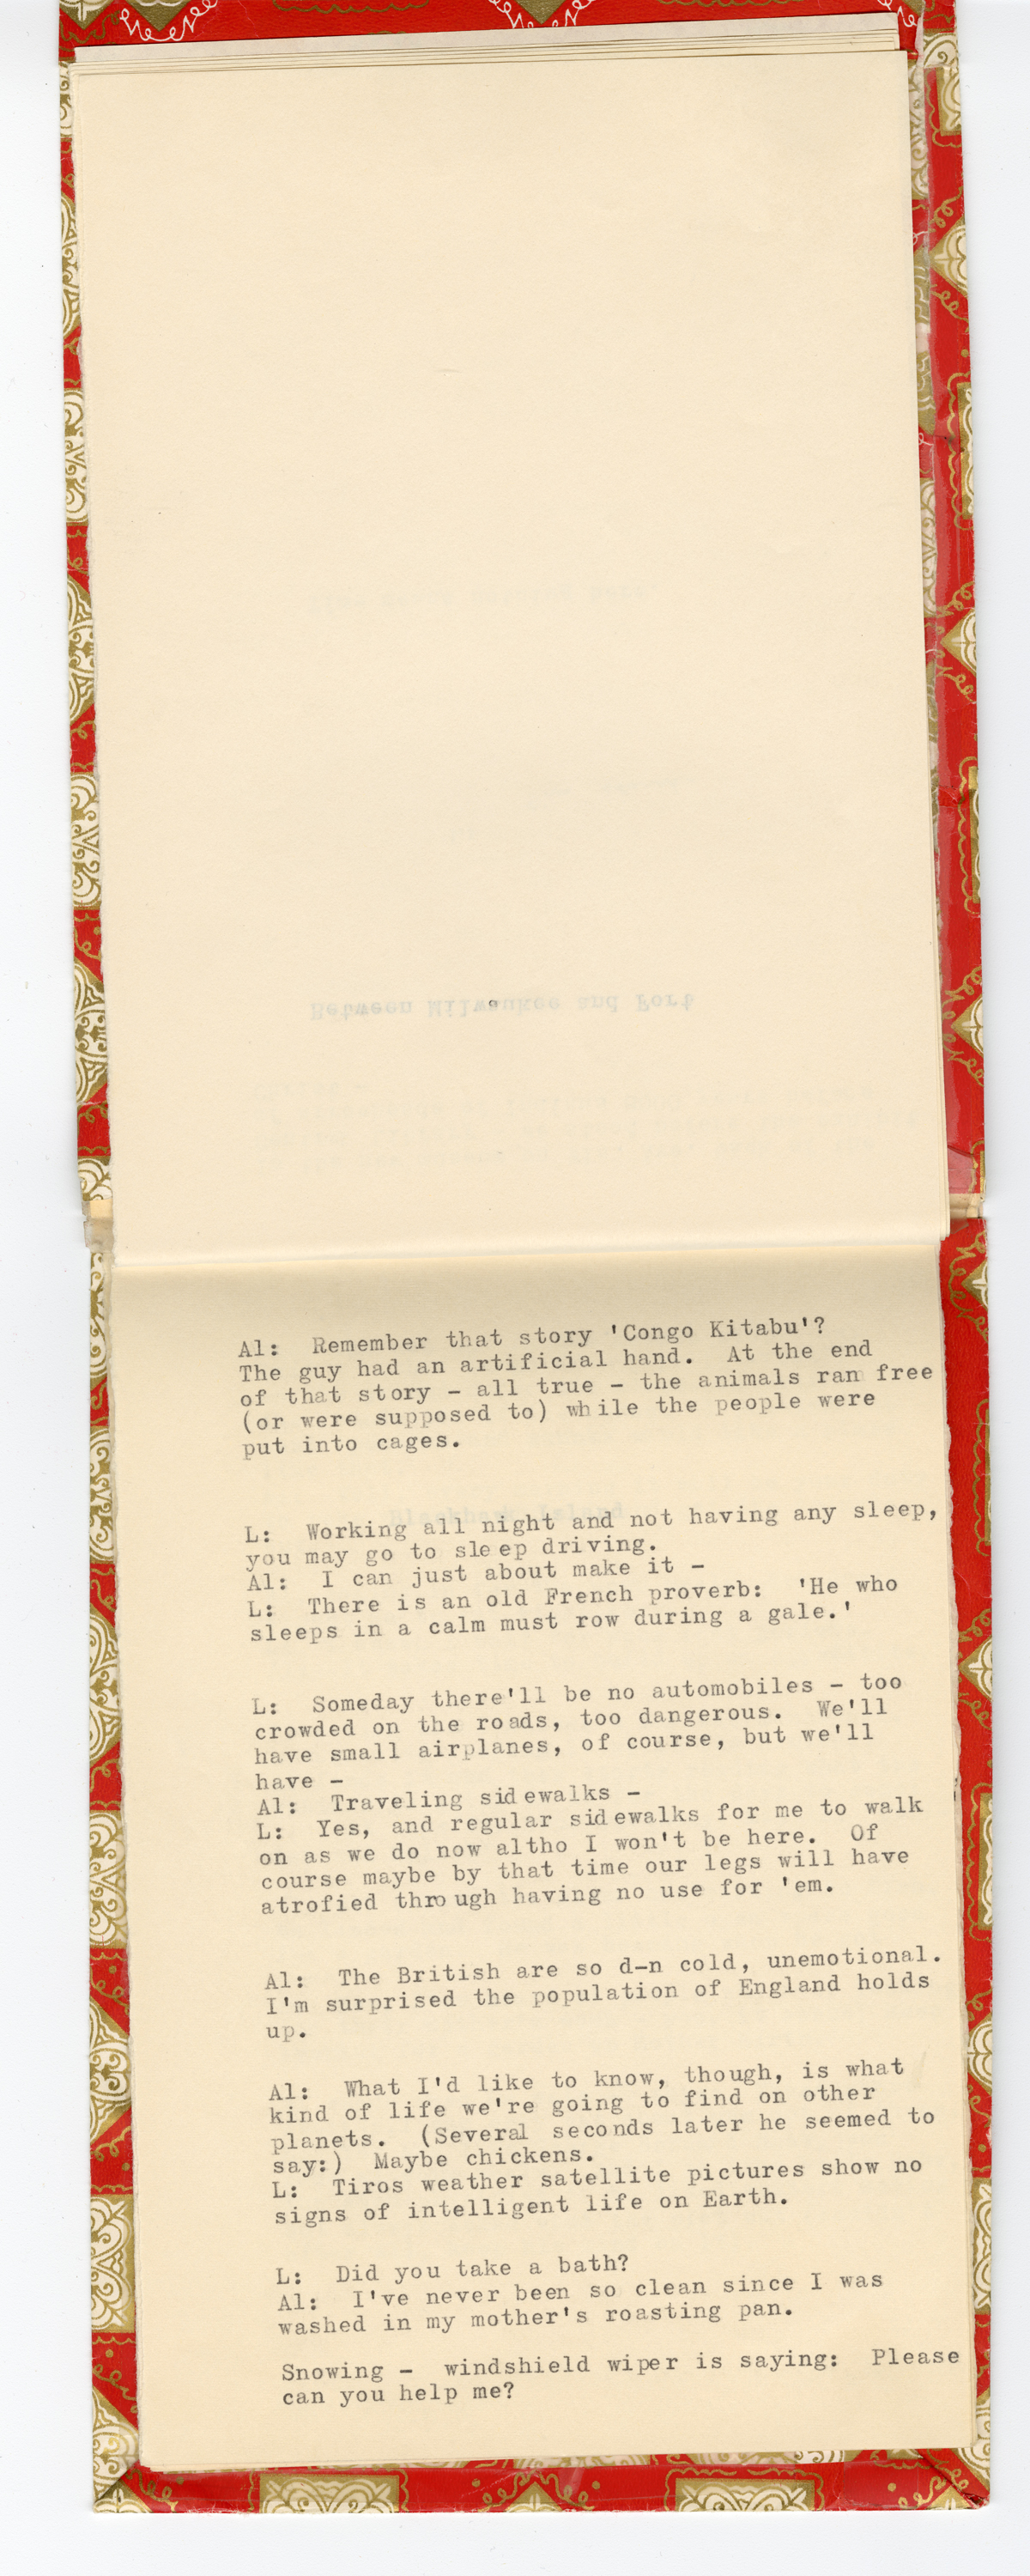 Between Milwaukee and Fort
Al:  Remember that story 'Congo Kitabu'?
The guy had an artificial hand.  At the end
of that story - all true - the animals ran free
(or were supposed to) while the people were
put into cages.
L:  Working all night and not having any sleep,
you may go to sleep driving.
Al:  I can just about make it -
L:  There is an old French proverb:  'He who
sleeps in a calm must row during a gale.'
L:  Someday there'll be no automobiles - too
crowded on the roads, too dangerous.  We'll
have small airplanes, of course, but we'll
have -
Al:  Traveling sidewalks -
L:  Yes, and regular sidewalks for me to walk
on as we do now altho I won't be here.  Of
course maybe by that time our legs will have
atrofied through having no use for 'em.
Al:  The British are so d-n cold, unemotional.
I'm surprised the population of England holds
up.
Al:  What I'd like to know, though, is what
kind of life we're going to find on other
planets.  (Several seconds later he seemed to
say:)  Maybe chickens.
L:  Tiros weather satellite pictures show no
signs of intelligent life on Earth.
L:  Did you take a bath?
Al:  I've never been so clean since I was
washed in my mother's roasting pan.
Snowing -  windshield wiper is saying:  Please
can you help me?